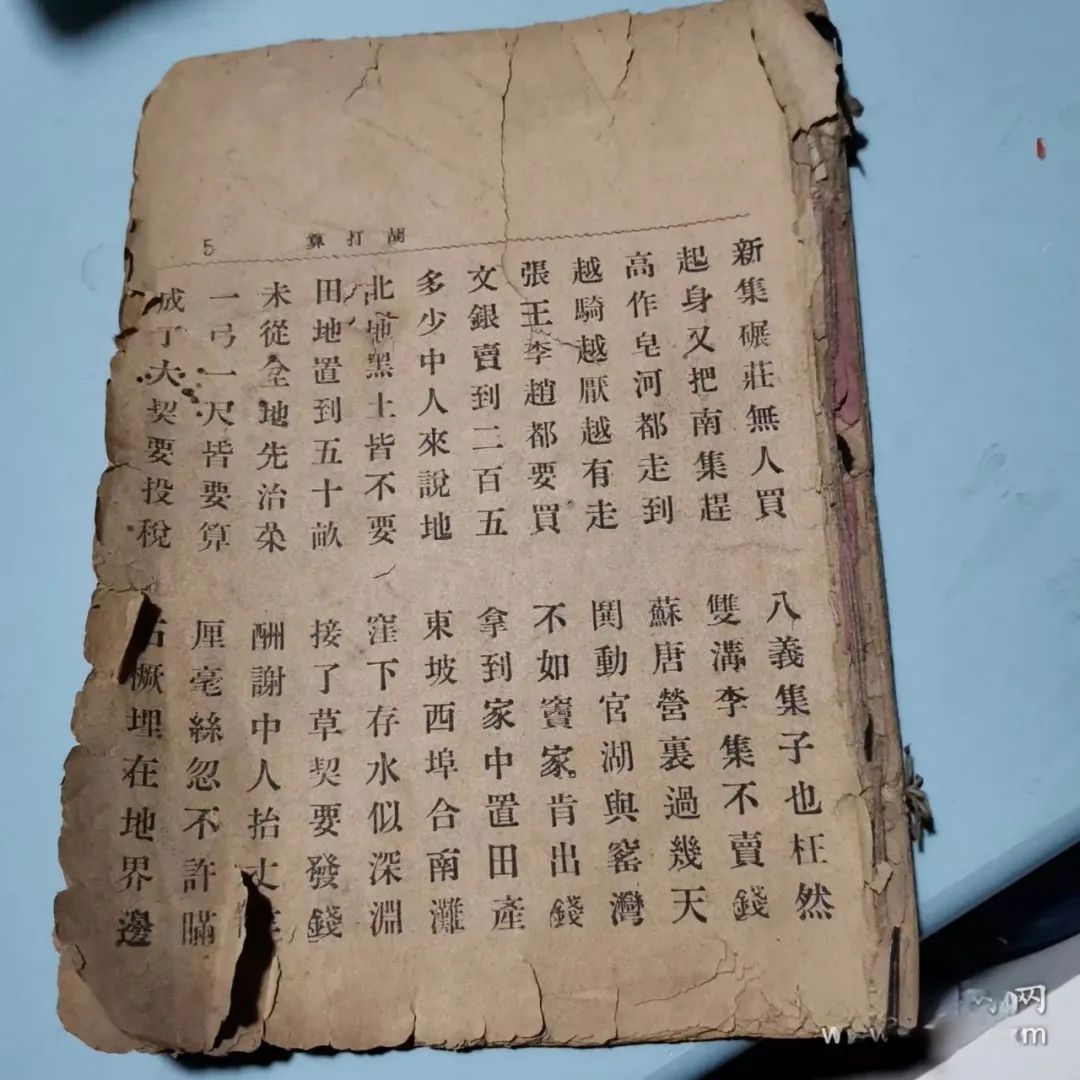 胡打算 5
新集碾莊無人買 八義集子也枉然
起身又把南集趕 雙溝李集不賣錢
高作皂河都走到 蘇唐營裏過幾天
越騎越厭越有走 閧動官湖與窰灣
張王李趙都要買 不如竇家肯出錢
文銀賣到二百五 拿到家中置田產
多少中人來說地 東坡西埠合南灘
北地黑土皆不要 窪下存水似深淵
田地置到五十畝 接了草契要發錢
未從仝地先治 酬謝中人抬丈
一弓一尺皆要算 厘毫絲忽不許瞞
成了大契要投稅 石橛埋在地界邊
网